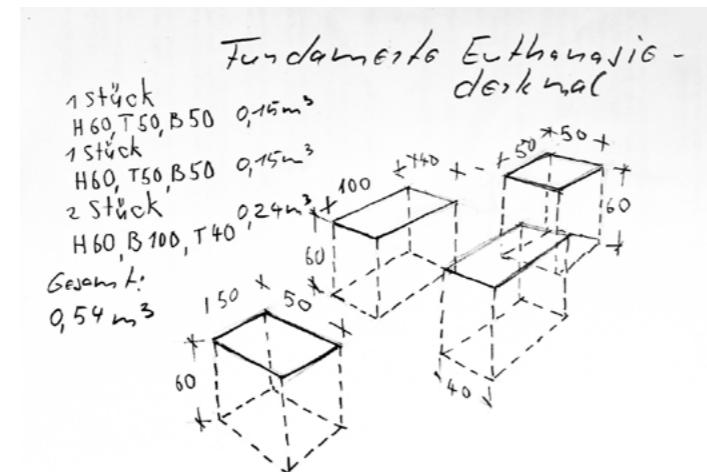 Fundamente Euthanasie-
denkmal
1 Stück
H60, T50, B50 0,15m³
1 Stück
H60, T50, B50 0,15m³
2 Stück
H60, B100, T40 0,24m³
Gesamt:
0,54m³
100
40
50
50
60
60
50
50
60
40